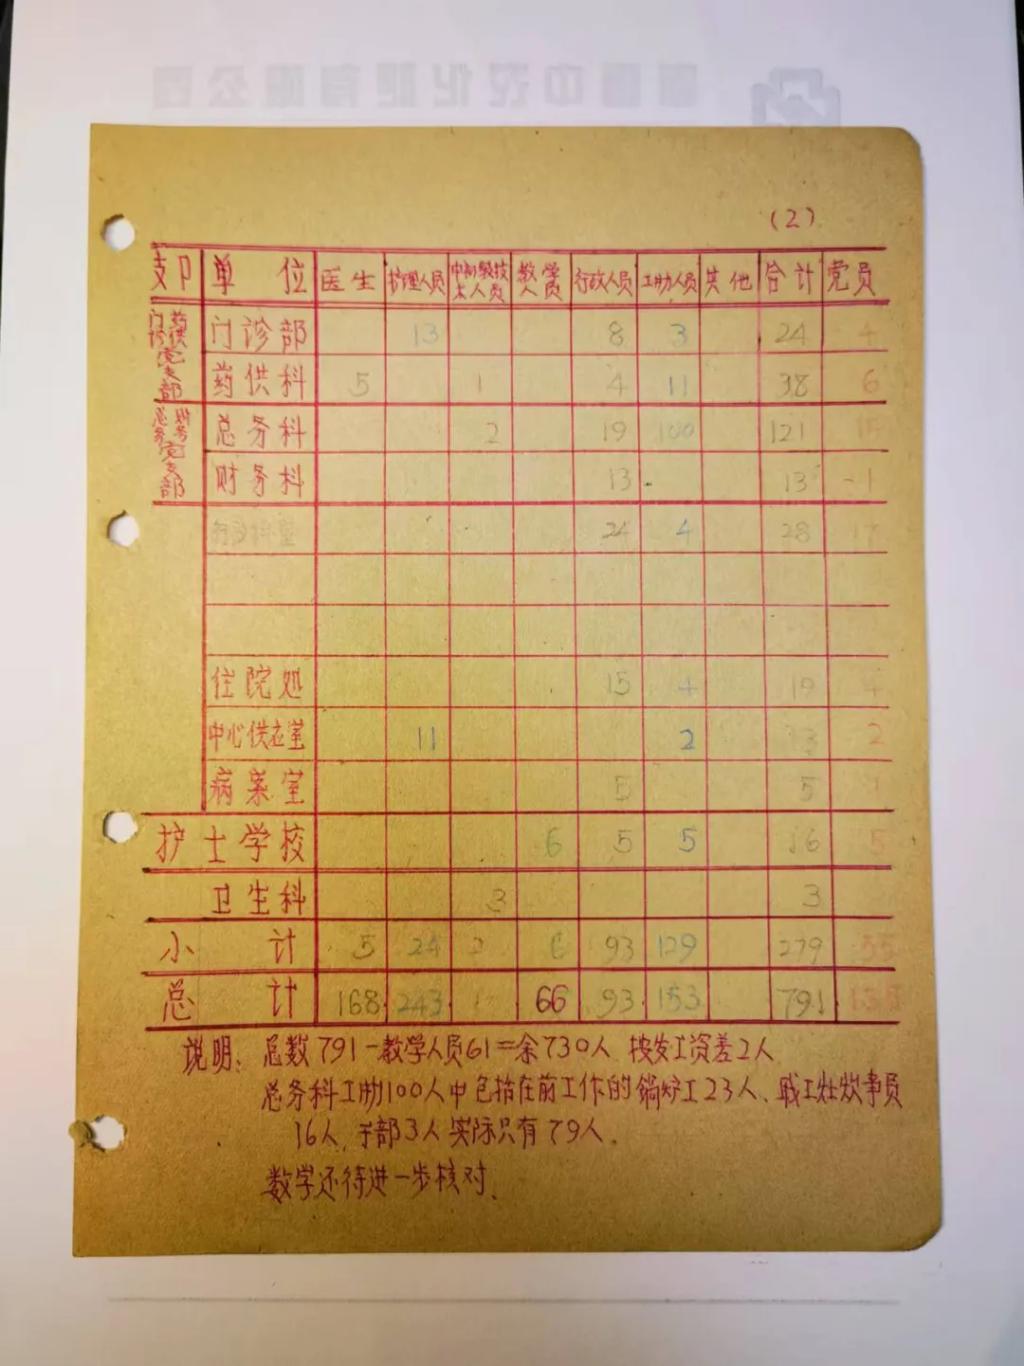 (2)
支卩 单位 医生 护理人员 中初级技术人员 教学人员 行政人员 工勤人员 其他 合计 党员
门诊药供党支部 门诊部 13 8 3 24 4
药供科 5 1 4 11 38 6
总务财务党支部 总务科 2 19 100 121
财务科 13 13 1
24 4 28
住院处 15 4 19 4
中心供应室 11 2 13 2
病案室 5 5
护士学校 6 5 5 16 5
卫生科 3 3
小计 5 24 6 93 129 279 55
总计 168 243 66 93 153 791
说明: 总数791-教学人员61=余730人 按发工资差2人
总务科工勤100人中包括在前工作的锅炉工23人、职工灶炊事员
16人,干部3人实际只有79人.
数学还待进一步核对.